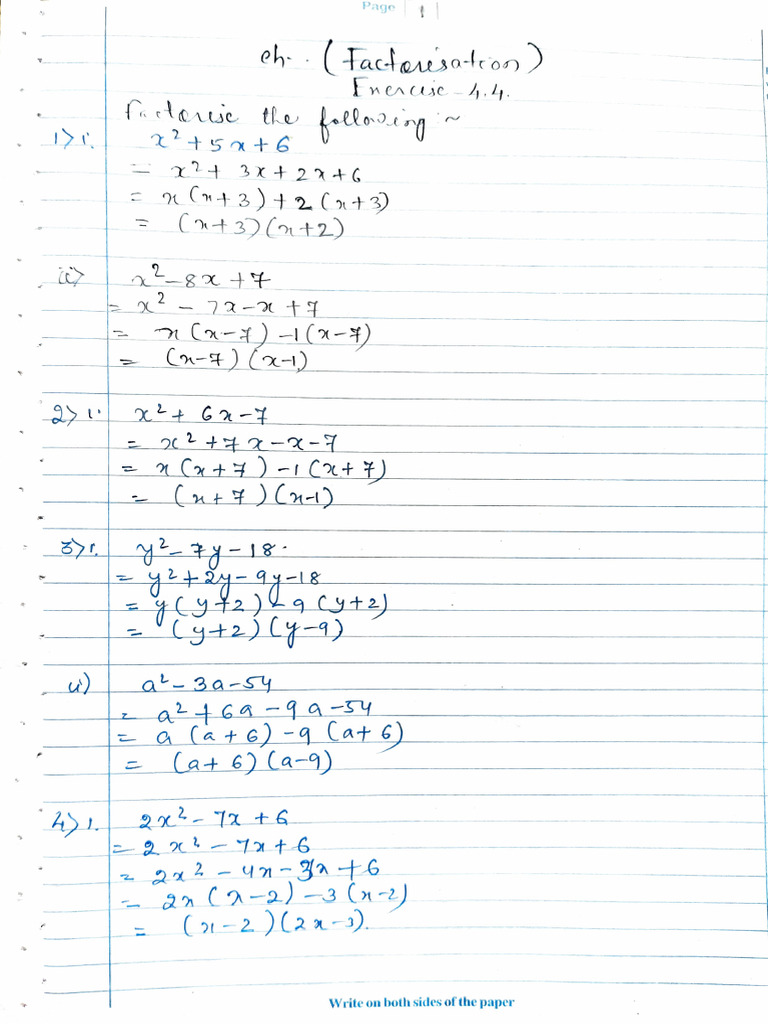 Page 1
ch. (Factorisation)
Exercise 4.4.
Factorise the following ~
1> i. x² + 5x + 6
= x² + 3x + 2x + 6
= x (x+3) + 2 (x+3)
= (x+3) (x+2)
ii> x² - 8x + 7
= x² - 7x - x + 7
= x (x-7) -1 (x-7)
= (x-7) (x-1)
2> i. x² + 6x - 7
= x² + 7x - x - 7
= x (x+7) -1 (x+7)
= (x+7) (x-1)
3> i. y² - 7y - 18.
= y² + 2y - 9y - 18
= y (y+2) - 9 (y+2)
= (y+2) (y-9)
ii) a² - 3a - 54
= a² + 6a - 9a - 54
= a (a+6) - 9 (a+6)
= (a+6) (a-9)
4> i. 2x² - 7x + 6
= 2x² - 7x + 6
= 2x² - 4x - 3x + 6
= 2x (x-2) - 3 (x-2)
= (x-2) (2x-3).
Write on both sides of the paper